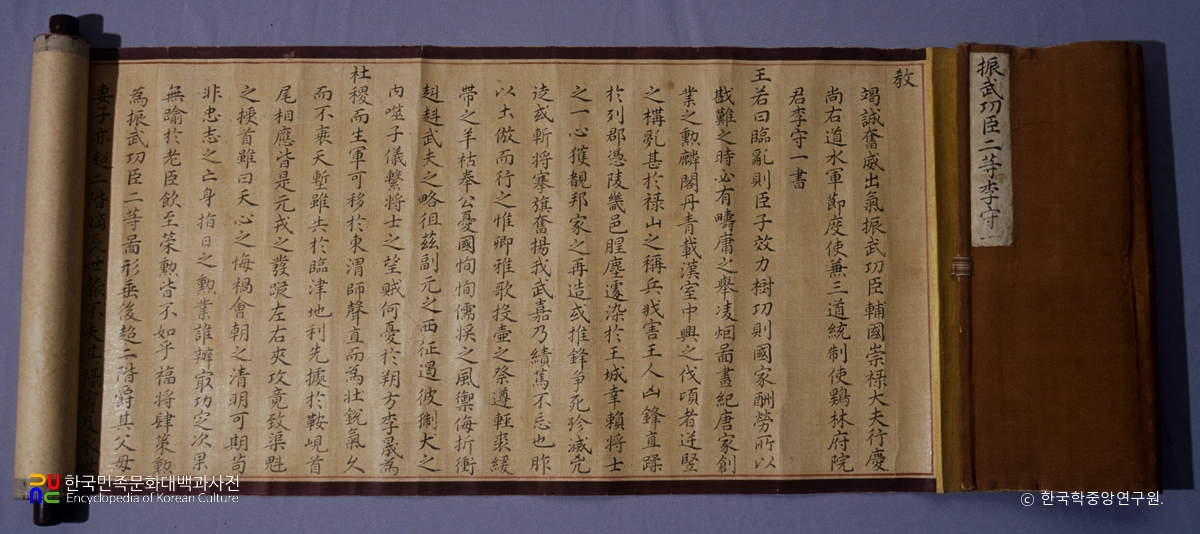 振武功臣二等李守一
教
竭誠奮威出氣振武功臣輔國崇祿大夫行慶
尚右道水軍節度使兼三道統制使鷄林府院
君李守一書
王若曰臨亂則臣子效力樹功則國家酬勞所以
戡難之時必有疇庸之擧凌烟啚畫紀唐家創
業之勲麟閣丹青載漢室中興之伐頃者逆竪
之構亂甚於祿山之稱兵戕害王人凶鋒直蹂
於列郡憑陵畿邑腥塵遽染於王城幸賴將士
之一心獲覩邦家之再造或推鋒争死殄滅兇
逵或斬將搴旗奮揚我武嘉乃績篤不忘也胙
以土倣而行之惟卿雅歌投壷之祭遵輕裘緩
帶之羊祜奉公憂國恂恂儒將之風禦侮折衝
赳赳武夫之略徂茲副元之西征遏彼猘犬之
內噬子儀繫將士之望賊何憂於朔方李晟爲
社稷而生軍可移於東渭師聲直而爲壮銳氣久
而不衰天塹雖共於臨津地利先據於鞍峴首
尾相應皆是元戎之發蹤左右夾攻竟致渠魁
之梗首雖曰天心之悔禍會朝之清明可期苟
非忠志之亡身指日之勲業誰辦㝡功定次果
無踰於老臣飮至策勲皆不如乎福將肆策勲
爲振武功臣二等啚形垂後超二階爵其父母
妻子亦超二階嫡長世
한국민족문화대백과사전
Encyclopedia of Korean Culture
ⓒ 한국학중앙연구원.